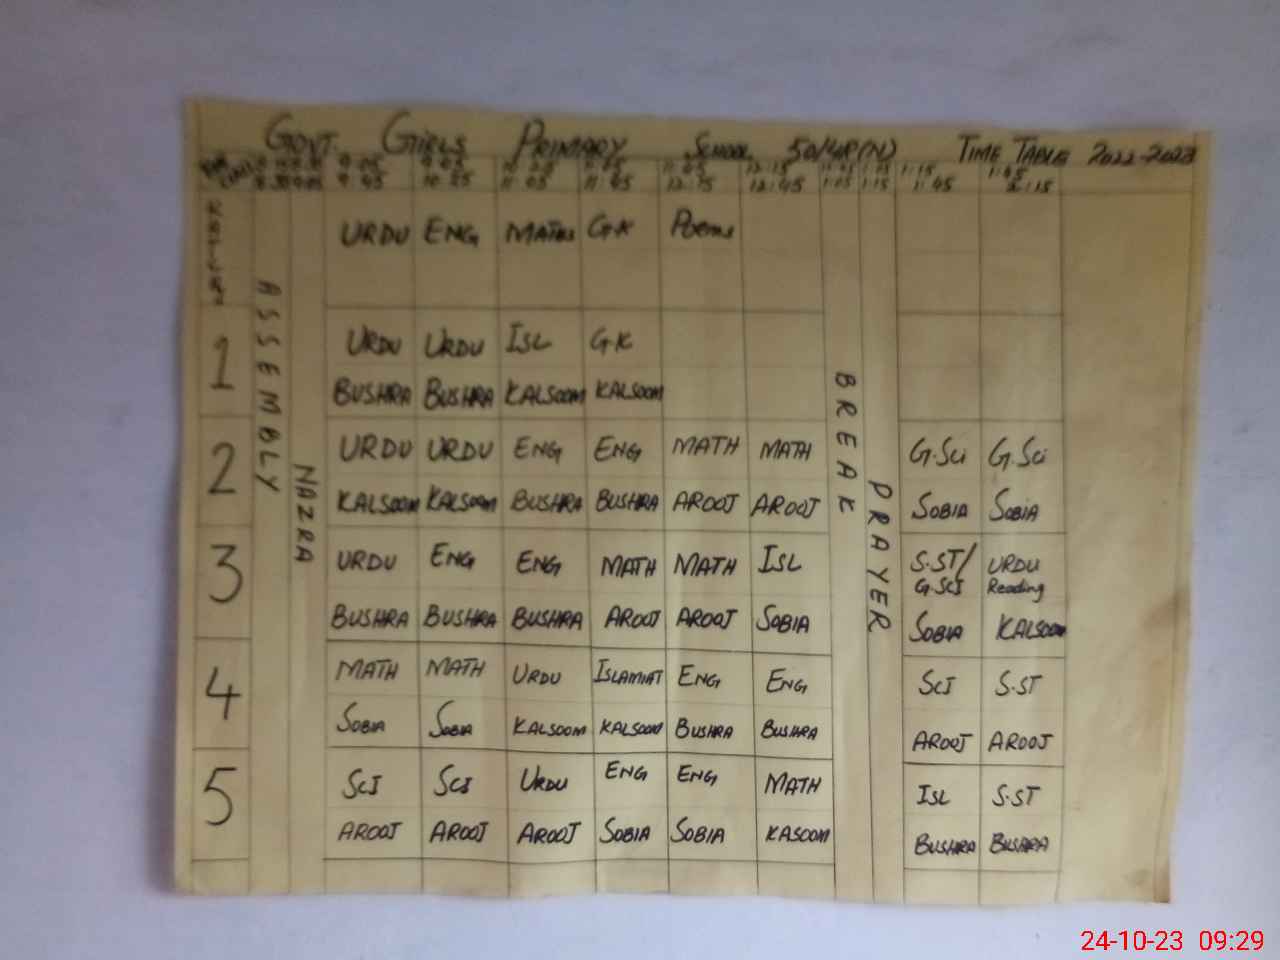 GOVT. GIRLS PRIMARY SCHOOL 50/4R(N) TIME TABLE 2022-2023
9:05 9:45 10:25 11:05 11:45 12:15 1:15 1:45
8:30 9:05 9:45 10:25 11:05 11:45 12:15 12:45 1:05 1:15 1:45 2:15
URDU ENG MATHS G.K Poems
ASSEMBLY
NAZRA
BREAK
PRAYER
1 URDU URDU ISL G.K
BUSHRA BUSHRA KALSOOM KALSOOM
2 URDU URDU ENG ENG MATH MATH G.Sci G.Sci
KALSOOM KALSOOM BUSHRA BUSHRA AROOJ AROOJ SOBIA SOBIA
3 URDU ENG ENG MATH MATH ISL S.ST/ URDU
G.SCI Reading
BUSHRA BUSHRA BUSHRA AROOJ AROOJ SOBIA SOBIA KALSOOM
4 MATH MATH URDU ISLAMIAT ENG ENG SCI S.ST
SOBIA SOBIA KALSOOM KALSOOM BUSHRA BUSHRA AROOJ AROOJ
5 SCI SCI URDU ENG ENG MATH ISL S.ST
AROOJ AROOJ AROOJ SOBIA SOBIA KASOOM BUSHRA BUSHRA
24-10-23 09:29